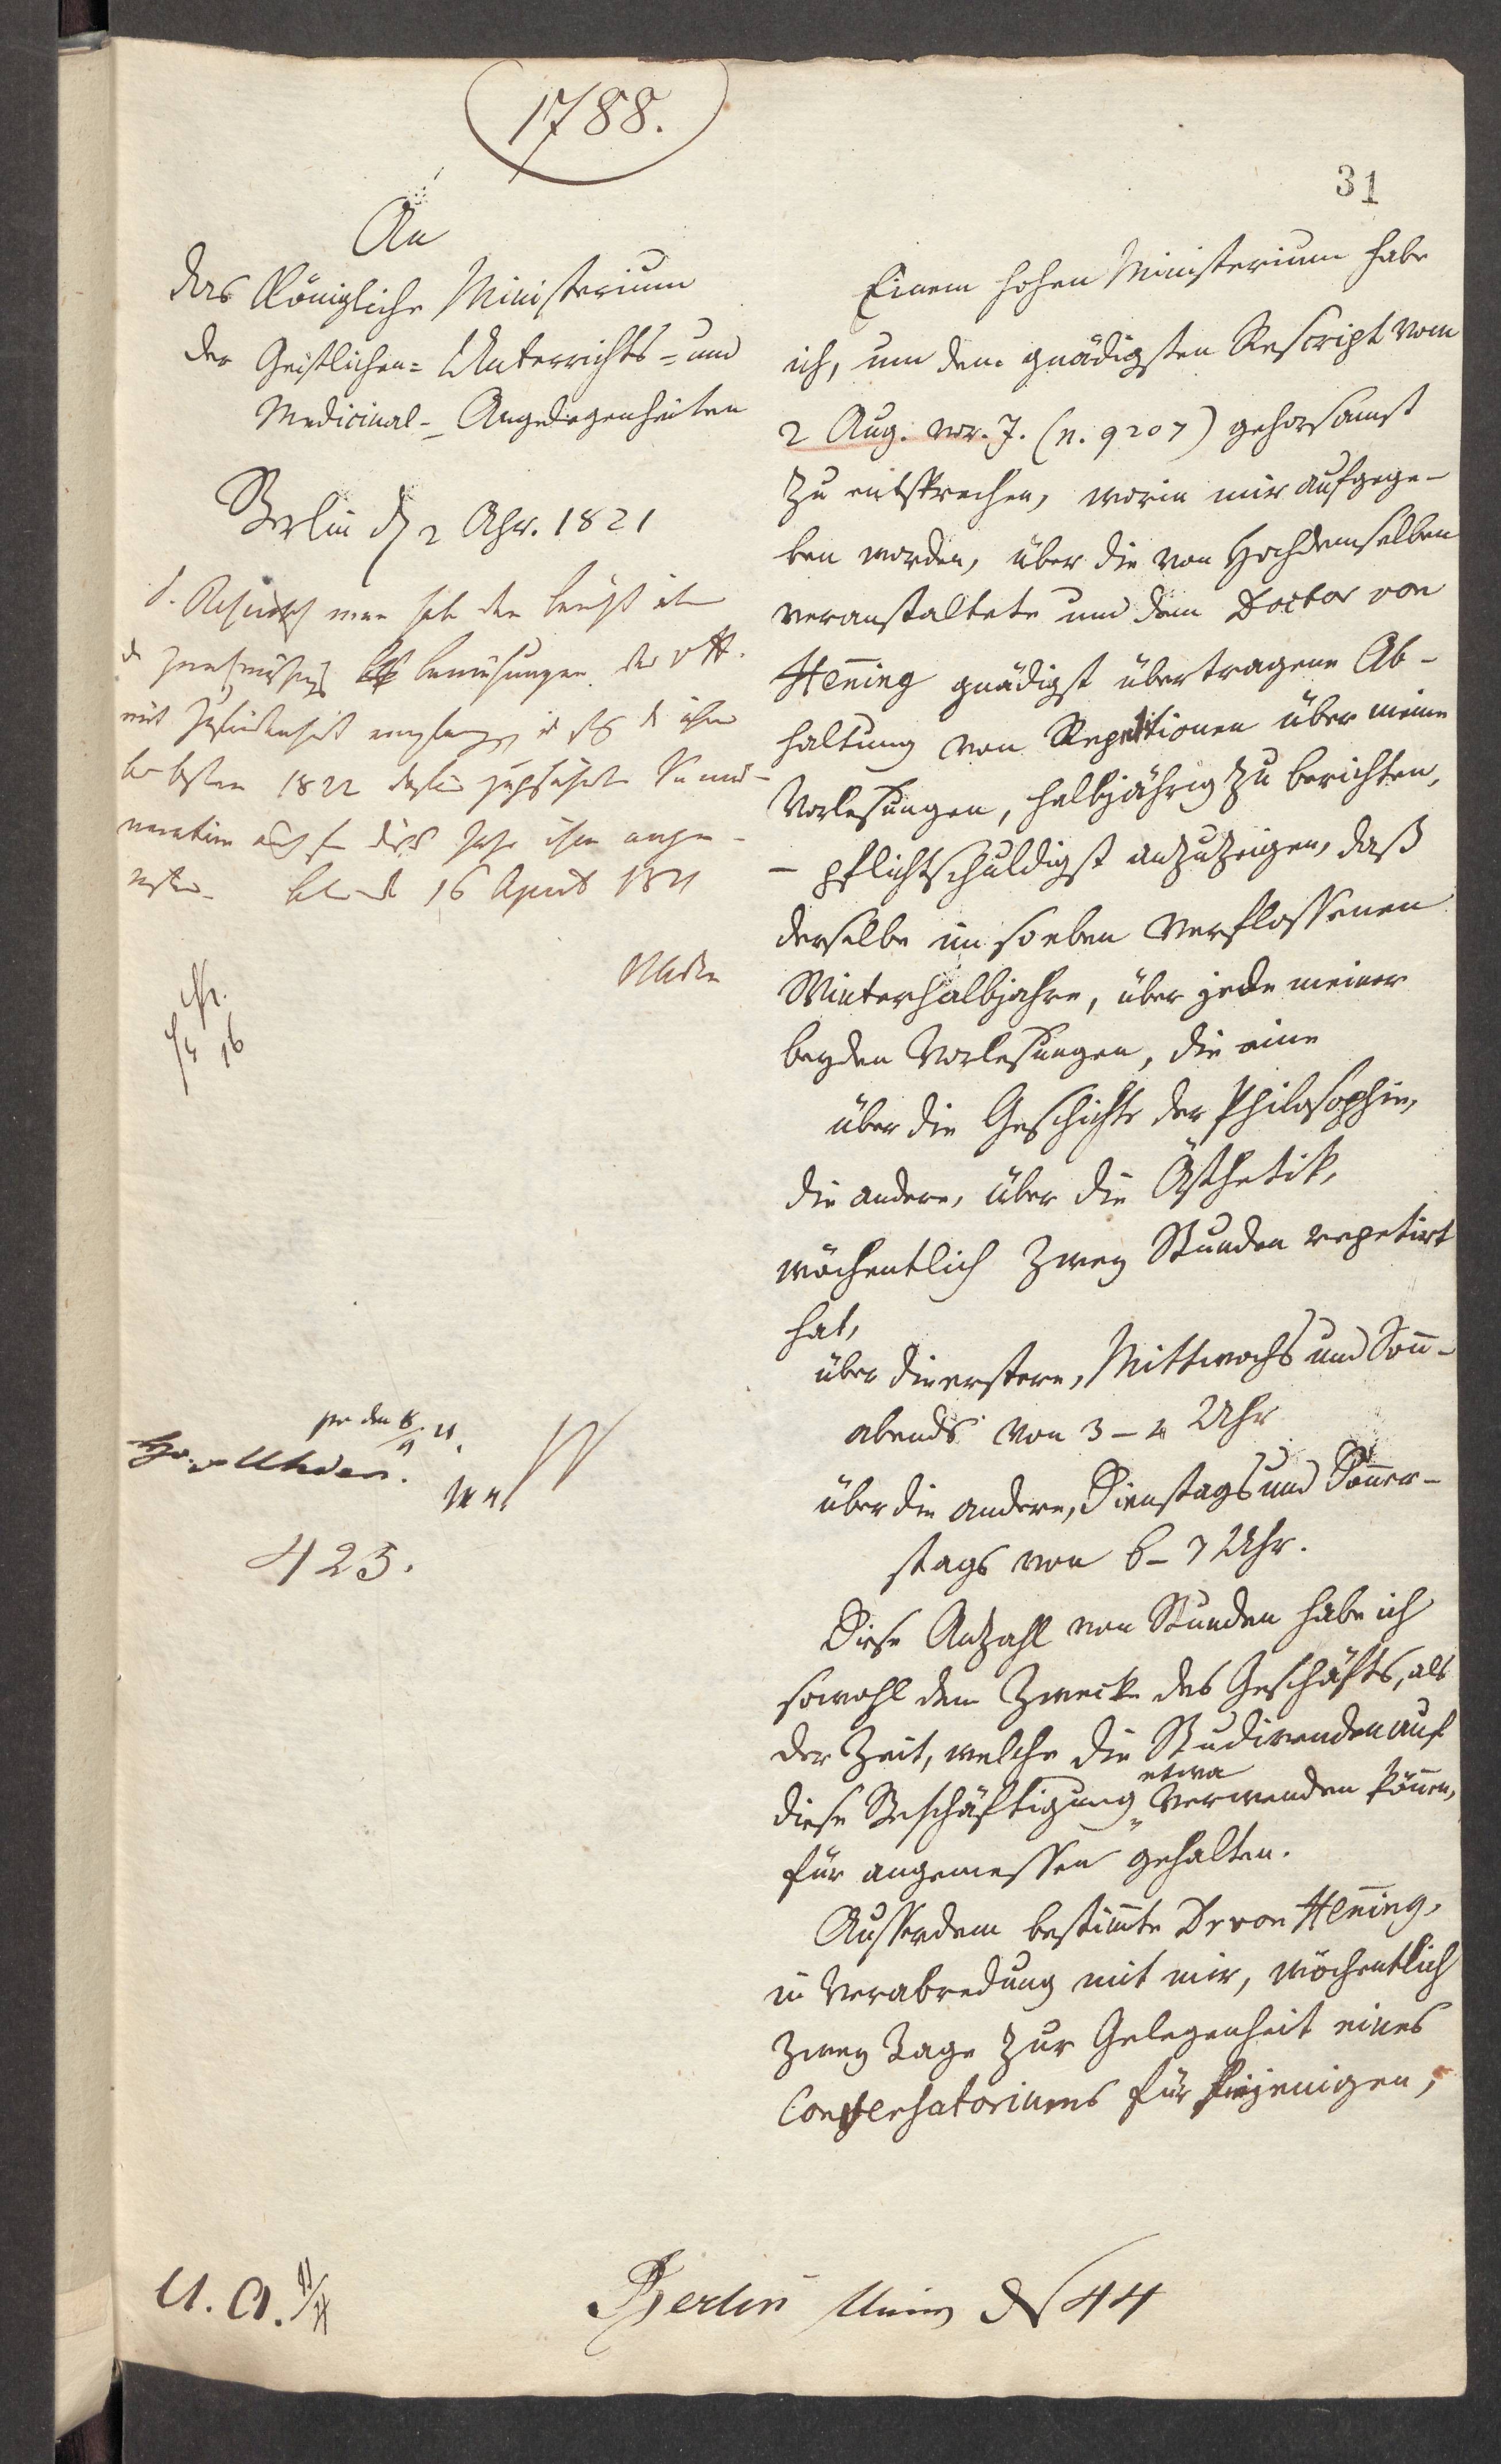 1788.
31
An
das Königliche Ministerium
der Geistlichen- Unterrichts- und
Medicinal- Angelegenheiten
Berlin d 2 Apr. 1821
1822
16 April 1821
Uhden
16
Hr. v Uhden.
423.
Einem hohen Ministerium habe
ich, um dem gnädigsten Rescript vom
2 Aug. vor. J. (n. 9207) gehorsamst
zu entsprechen, worin mir aufgege-
ben worden, über die von Hochdemselben
veranstaltete und dem Doctor von
Hen̄ing gnädigst übertragene Ab-
haltung von Repetitionen über meine
Vorlesungen, halbjährig zu berichten,
– pflichtschuldigst anzuzeigen, daß
derselbe im soeben verflossenen
Winterhalbjahre, über jede meiner
beyden Vorlesungen, die eine
über die Geschichte der Philosophie,
die andere, über die Ästhetik,
wöchentlich zwey Stunden repetirt
hat,
über die erstere, Mittwochs und Son̄-
abends von 3–4 Uhr
über die andere, Dienstags und Don̄er-
stags von 6–7 Uhr.
Diese Anzahl von Stunden habe ich
sowohl dem Zwecke des Geschäfts, als
der Zeit, welche die Studirenden auf
diese Beschäftigung etwa verwenden kön̄en,
für angemessen gehalten.
Ausserdem bestim̄te Dr von Hen̄ing,
in Verabredung mit mir, wöchentlich
zwey Tage zur Gelegenheit eines
Conversatoriums für diejenigen,
U. A.
Berlin Univ N 44